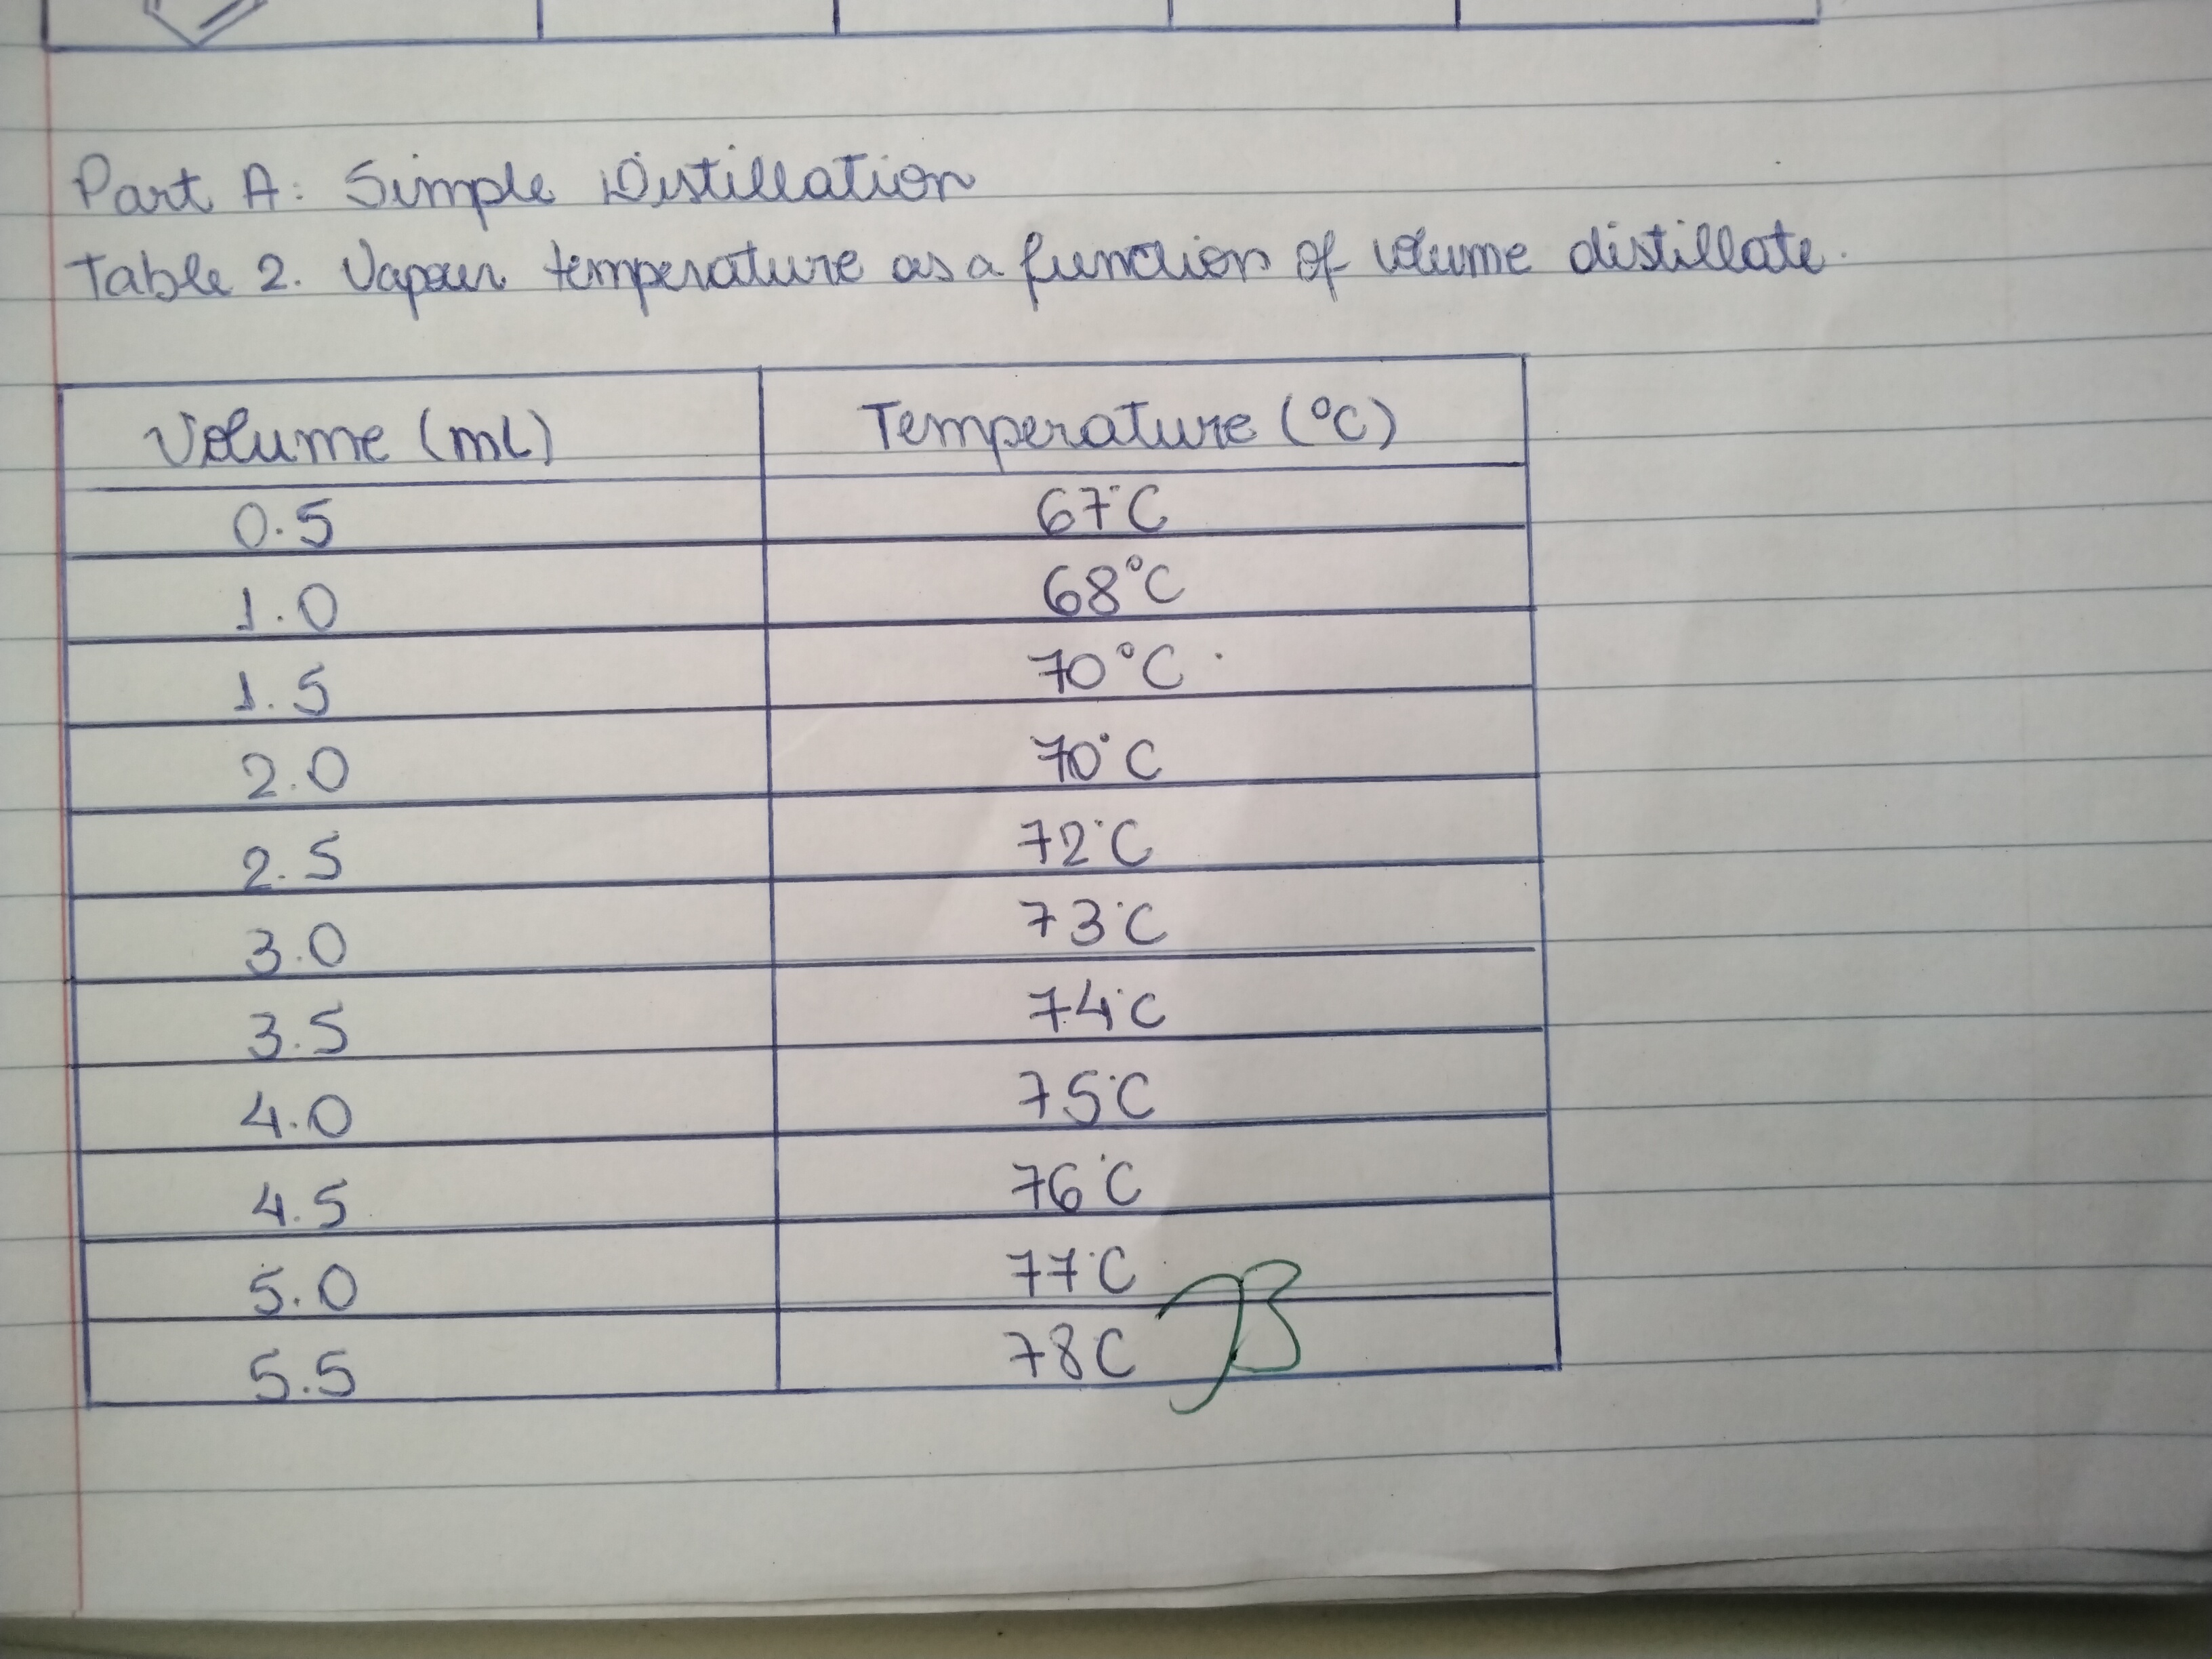 Part A: Simple Distillation
Table 2. Vapour temperature as a function of volume distillate.
Volume (mL) Temperature (°C)
0.5 67°C
1.0 68°C
1.5 70°C
2.0 70°C
2.5 72°C
3.0 73°C
3.5 74°C
4.0 75°C
4.5 76°C
5.0 77°C
5.5 78C